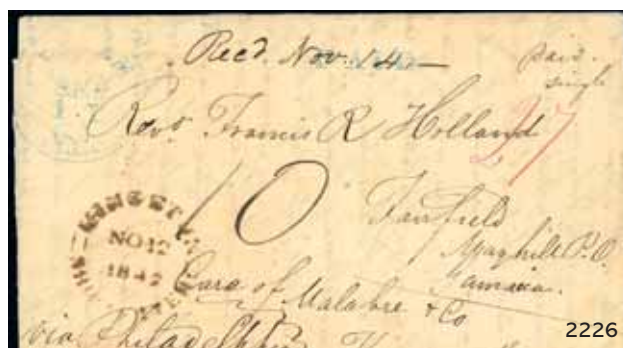 Recd. Nov. 14 —
Paid.
single
27
Revd. Francis R Holland
10
Fairfield
Mayhill P.O.
Jamaica.
KINGSTON
NO 12
1847
SHIP LETTER
Care of
Malabre & Co
via Philadelphia
2226